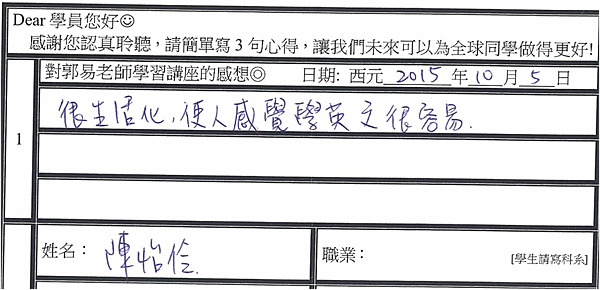 Dear 學員您好☺
感謝您認真聆聽，請簡單寫 3 句心得，讓我們未來可以為全球同學做得更好!
對郭易老師學習講座的感想◎ 日期: 西元 2015 年 10 月 5 日
1
很生活化，使人感覺學英文很容易.
姓名： 陳怡伶 職業： [學生請寫科系]